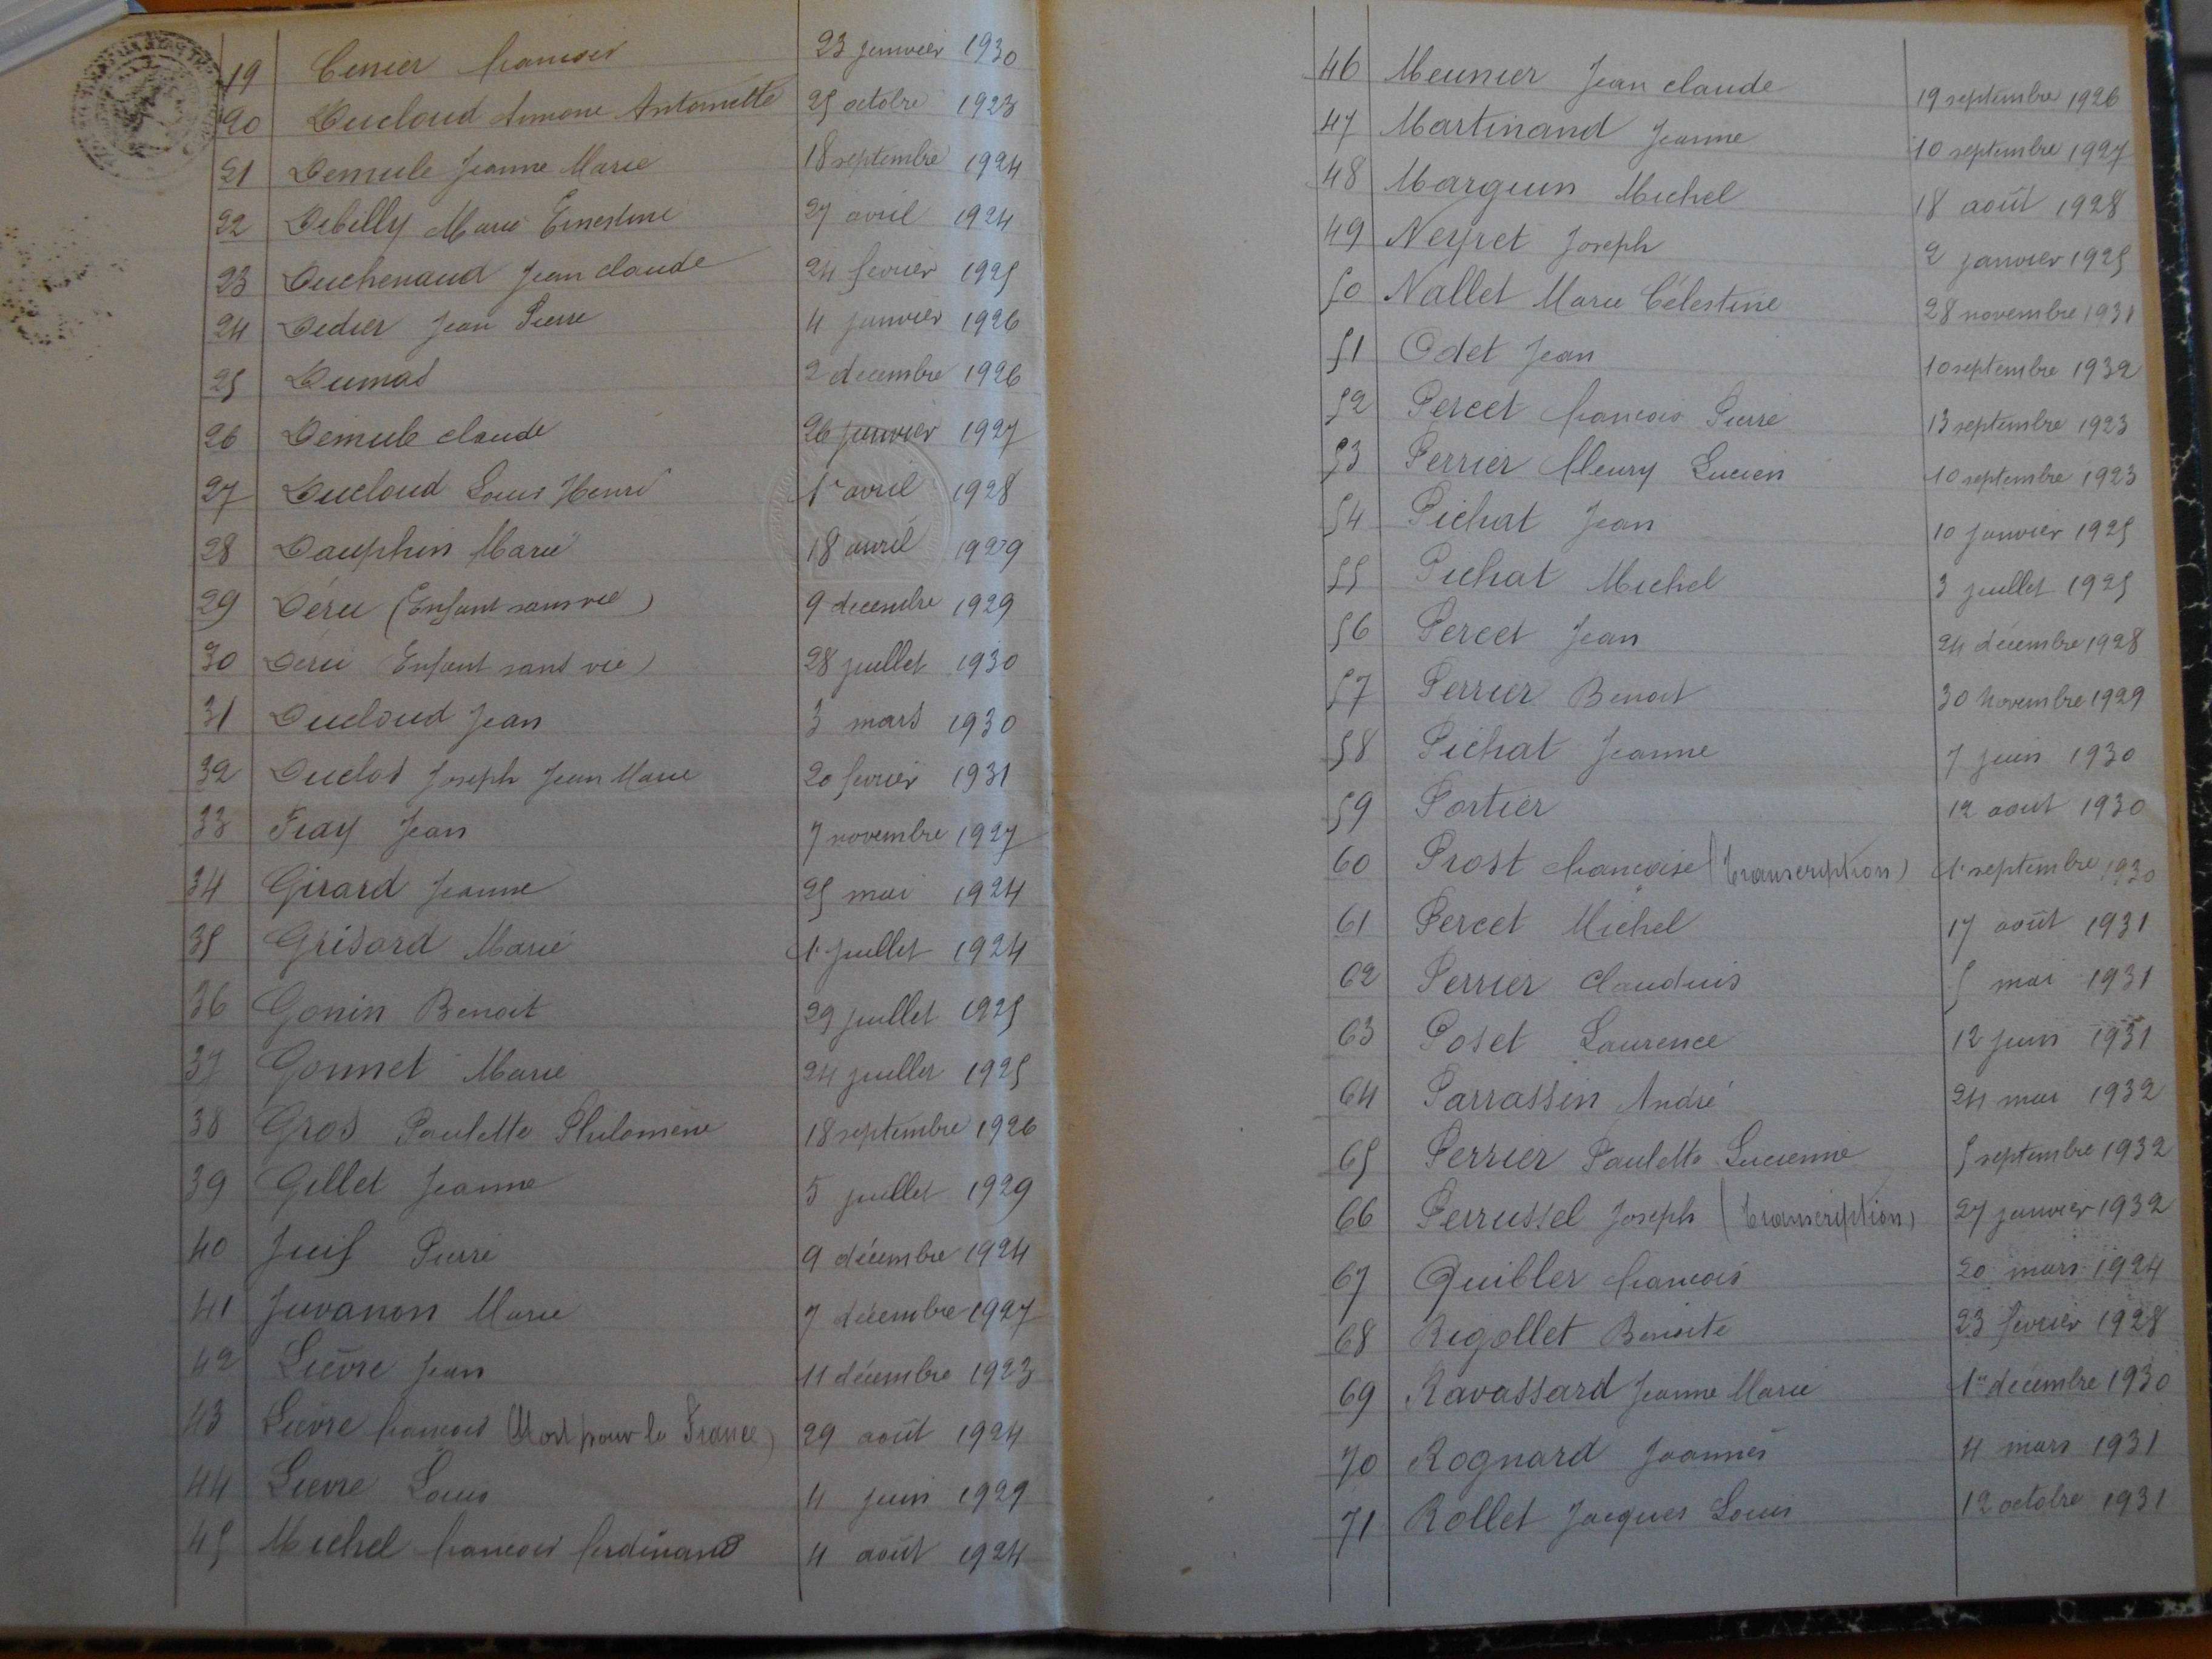 19 Cerrier francois 23 janvier 1930
20 Ducloud Simone Antoinette 25 octobre 1923
21 Demule Jeanne Marie 18 septembre 1924
22 Debilly Marie Ernestine 27 avril 1924
23 Duchenaud Jean claude 24 fevrier 1925
24 Didier Jean Pierre 4 janvier 1926
25 Dumas 2 decembre 1926
26 Demule claude 26 janvier 1927
27 Ducloud Louis Henri 1er avril 1928
28 Dauphin Marie 18 avril 1929
29 Déru (Enfant sans vie) 9 decembre 1929
30 Déru (Enfant sans vie) 28 juillet 1930
31 Ducloud Jean 3 mars 1930
32 Duclos Joseph Jean Marie 20 fevrier 1931
33 Fray Jean 7 novembre 1927
34 Girard Jeanne 25 mai 1924
35 Grisard Marie 1er juillet 1924
36 Gonin Benoit 29 juillet 1925
37 Gonnet Marie 24 juillet 1925
38 Gros Paulette Philomène 18 septembre 1926
39 Gillet Jeanne 5 juillet 1929
40 Juif Pierre 9 décembre 1924
41 Juvanon Marie 7 décembre 1927
42 Lièvre Jean 11 décembre 1923
43 Lièvre francois (Mort pour la France) 29 août 1924
44 Lievre Louis 4 juin 1929
45 Michel francois ferdinand 4 août 1924
46 Meunier Jean claude 19 septembre 1926
47 Martinand Jeanne 10 septembre 1927
48 Marguin Michel 18 août 1928
49 Neyret Joseph 2 janvier 1925
50 Nallet Marie Célestine 28 novembre 1931
51 Odet Jean 10 septembre 1932
52 Percet francois Pierre 13 septembre 1923
53 Perrier fleury Lucien 10 septembre 1923
54 Pichat Jean 10 janvier 1925
55 Pichat Michel 3 juillet 1925
56 Percet Jean 24 décembre 1928
57 Perrier Benoit 30 Novembre 1929
58 Pichat Jeanne 7 juin 1930
59 Portier 12 aout 1930
60 Prost francoise (transcription) 1er septembre 1930
61 Percet Michel 17 août 1931
62 Perrier Claudius 5 mai 1931
63 Poset Laurence 12 juin 1931
64 Parrassin André 24 mai 1932
65 Perrier Paulette Lucienne 5 septembre 1932
66 Perrussel Joseph (transcription) 27 janvier 1932
67 Quibler francois 20 mars 1924
68 Rigollet Benoite 23 fevrier 1928
69 Ravassard Jeanne Marie 1er decembre 1930
70 Rognard Joannès 4 mars 1931
71 Rollet Jacques Louis 12 octobre 1931